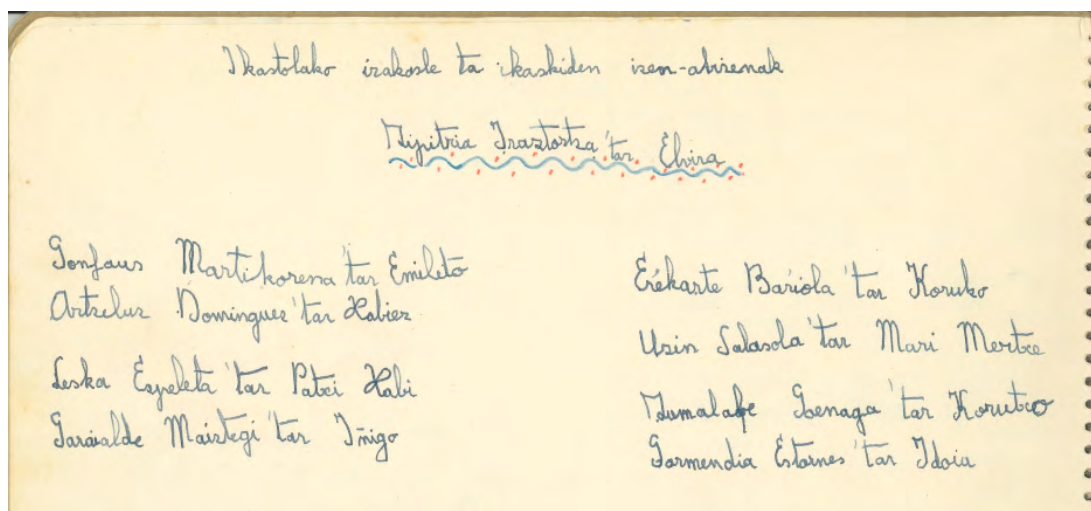 Ikastolako irakasle ta ikaskiden izen-abizenak
Zipitria Irastortza'tar Elvira
Gonfaus Martikorena'tar Emileto
Artzeluz Dominguez'tar Xabier
Leska Ezpeleta'tar Patxi Xabi
Garaialde Maiztegi'tar Iñigo
Erékarte Bariola'tar Koruko
Usin Salasola'tar Mari Mertxe
Goenaga'tar Korutxo
Garmendia Estornes'tar Idoia